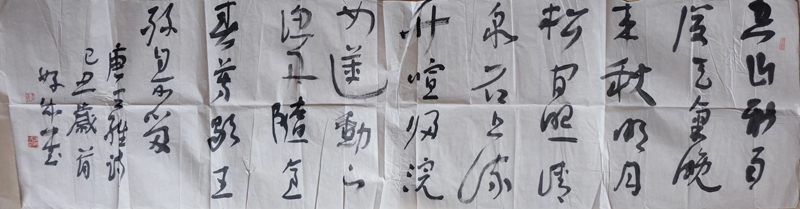 空山新雨
後天氣晚
来秋明月
松间照清
泉石上流
竹喧归浣
女莲動下
渔舟隨意
春芳歇王
孫自可留
唐王維诗
己丑歲